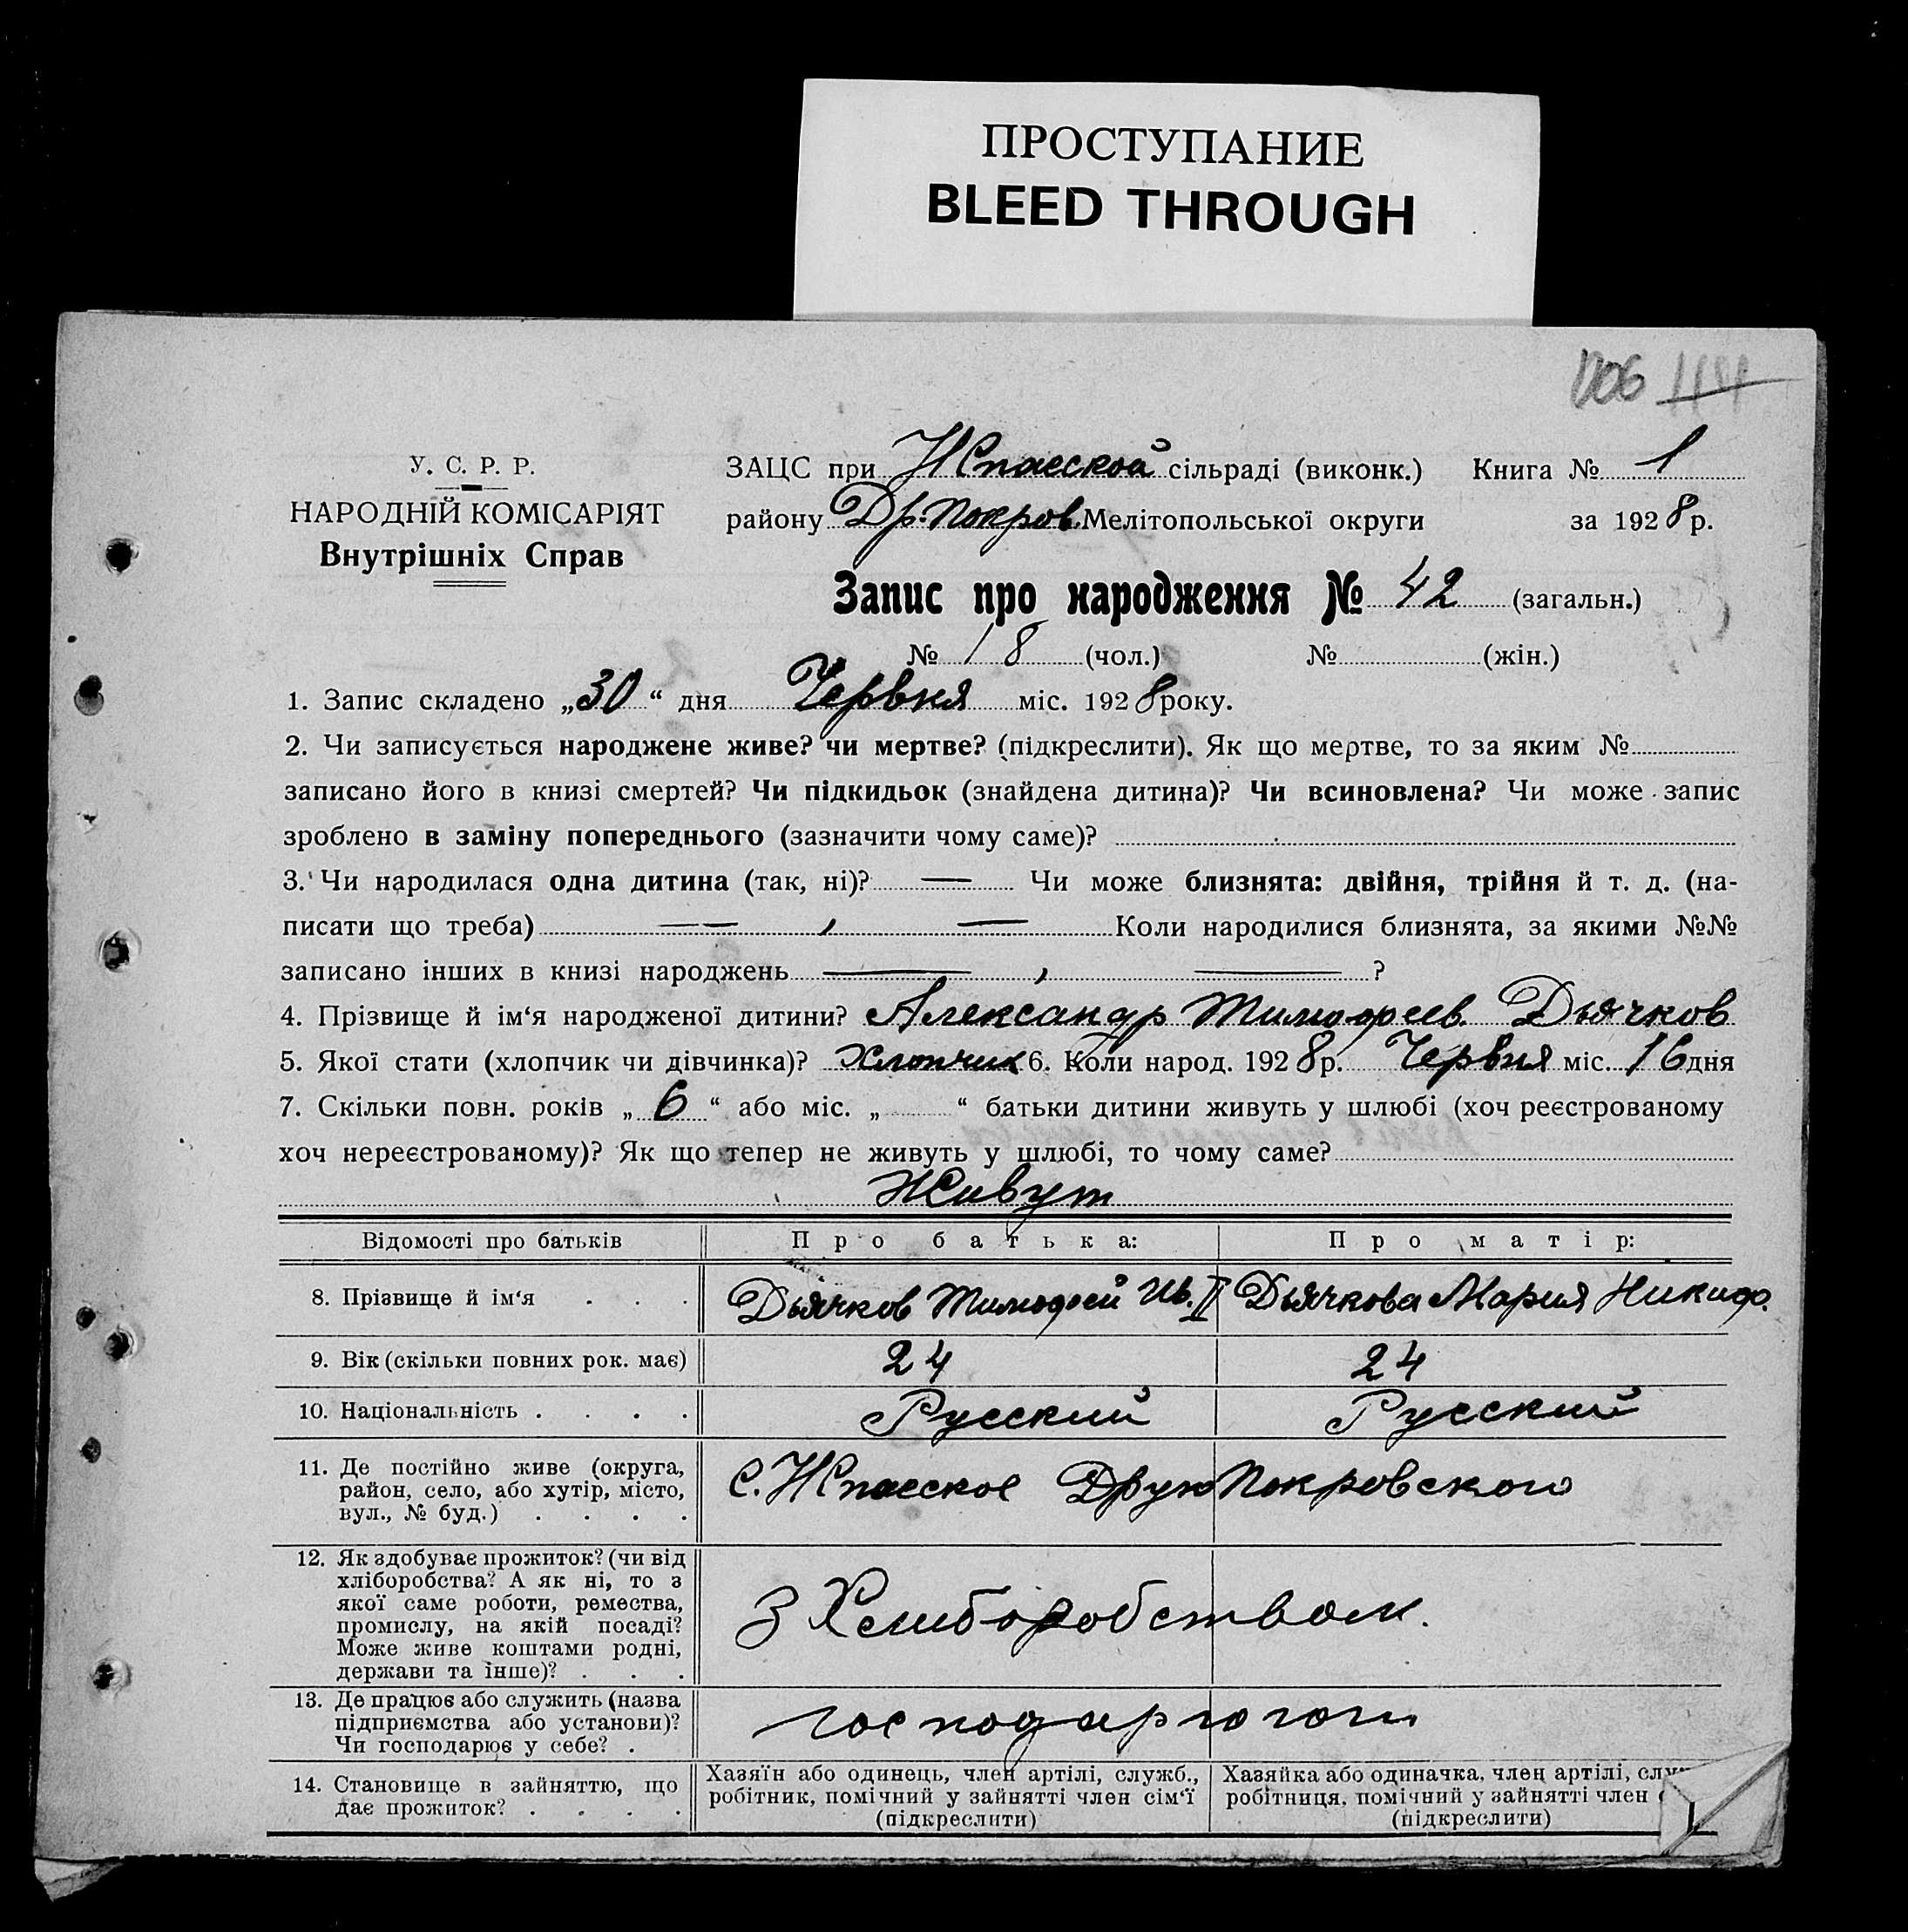 ПРОСТУПАНИЕ
BLEED THROUGH
1206
У. С. Р. Р.
НАРОДНІЙ КОМІСАРІЯТ
Внутрішніх Справ
ЗАЦС при НСпасской сільраді (виконк.) Книга № 1
району Др. Покров. Мелітопольської округи за 1928 р.
Запис про народження № 42 (загальн.)
№ 18 (чол.) № (жін.)
1. Запис складено „30“ дня Червня міс. 1928 року.
2. Чи записується народжене живе? чи мертве? (підкреслити). Як що мертве, то за яким №
записано його в книзі смертей? Чи підкидьок (знайдена дитина)? Чи всиновлена? Чи може запис
зроблено в заміну попереднього (зазначити чому саме)?
3. Чи народилася одна дитина (так, ні)? — Чи може близнята: двійня, трійня й т. д. (на-
писати що треба) — , — Коли народилися близнята, за якими №№
записано інших в книзі народжень — , — ?
4. Прізвище й ім‘я народженої дитини? Александр Тимофеев. Дьячков
5. Якої стати (хлопчик чи дівчинка)? Хлопчик 6. Коли народ. 1928 р. Червня міс. 16 дня
7. Скільки повн. років „6“ або міс. „ “ батьки дитини живуть у шлюбі (хоч реєстрованому
хоч нереєстрованому)? Як що тепер не живуть у шлюбі, то чому саме?
Живут
Відомості про батьків Про батька: Про матір:
8. Прізвище й ім‘я . . . Дьячков Тимофей Ив. II Дьячкова Мария Никиф.
9. Вік (скільки повних рок. має) 24 24
10. Національність . . . . Русский Русский
11. Де постійно живе (округа,
район, село, або хутір, місто,
вул., № буд.) . . . .
с. НСпасское Друж Покровского
12. Як здобуває прожиток? (чи від
хліборобства? А як ні, то з
якої саме роботи, ремества,
промислу, на якій посаді?
Може живе коштами родні,
держави та інше)? . . .
З Хлиборобством.
13. Де працює або служить (назва
підприємства або установи)?
Чи господарює у себе? .
14. Становище в зайняттю, що
дає прожиток? . . . .
Хазяїн або одинець, член артілі, служб.,
робітник, помічний у зайнятті член сім‘ї
(підкреслити)
Хазяйка або одиначка, член артілі, слу
робітниця, помічний у зайнятті член
(підкреслити)